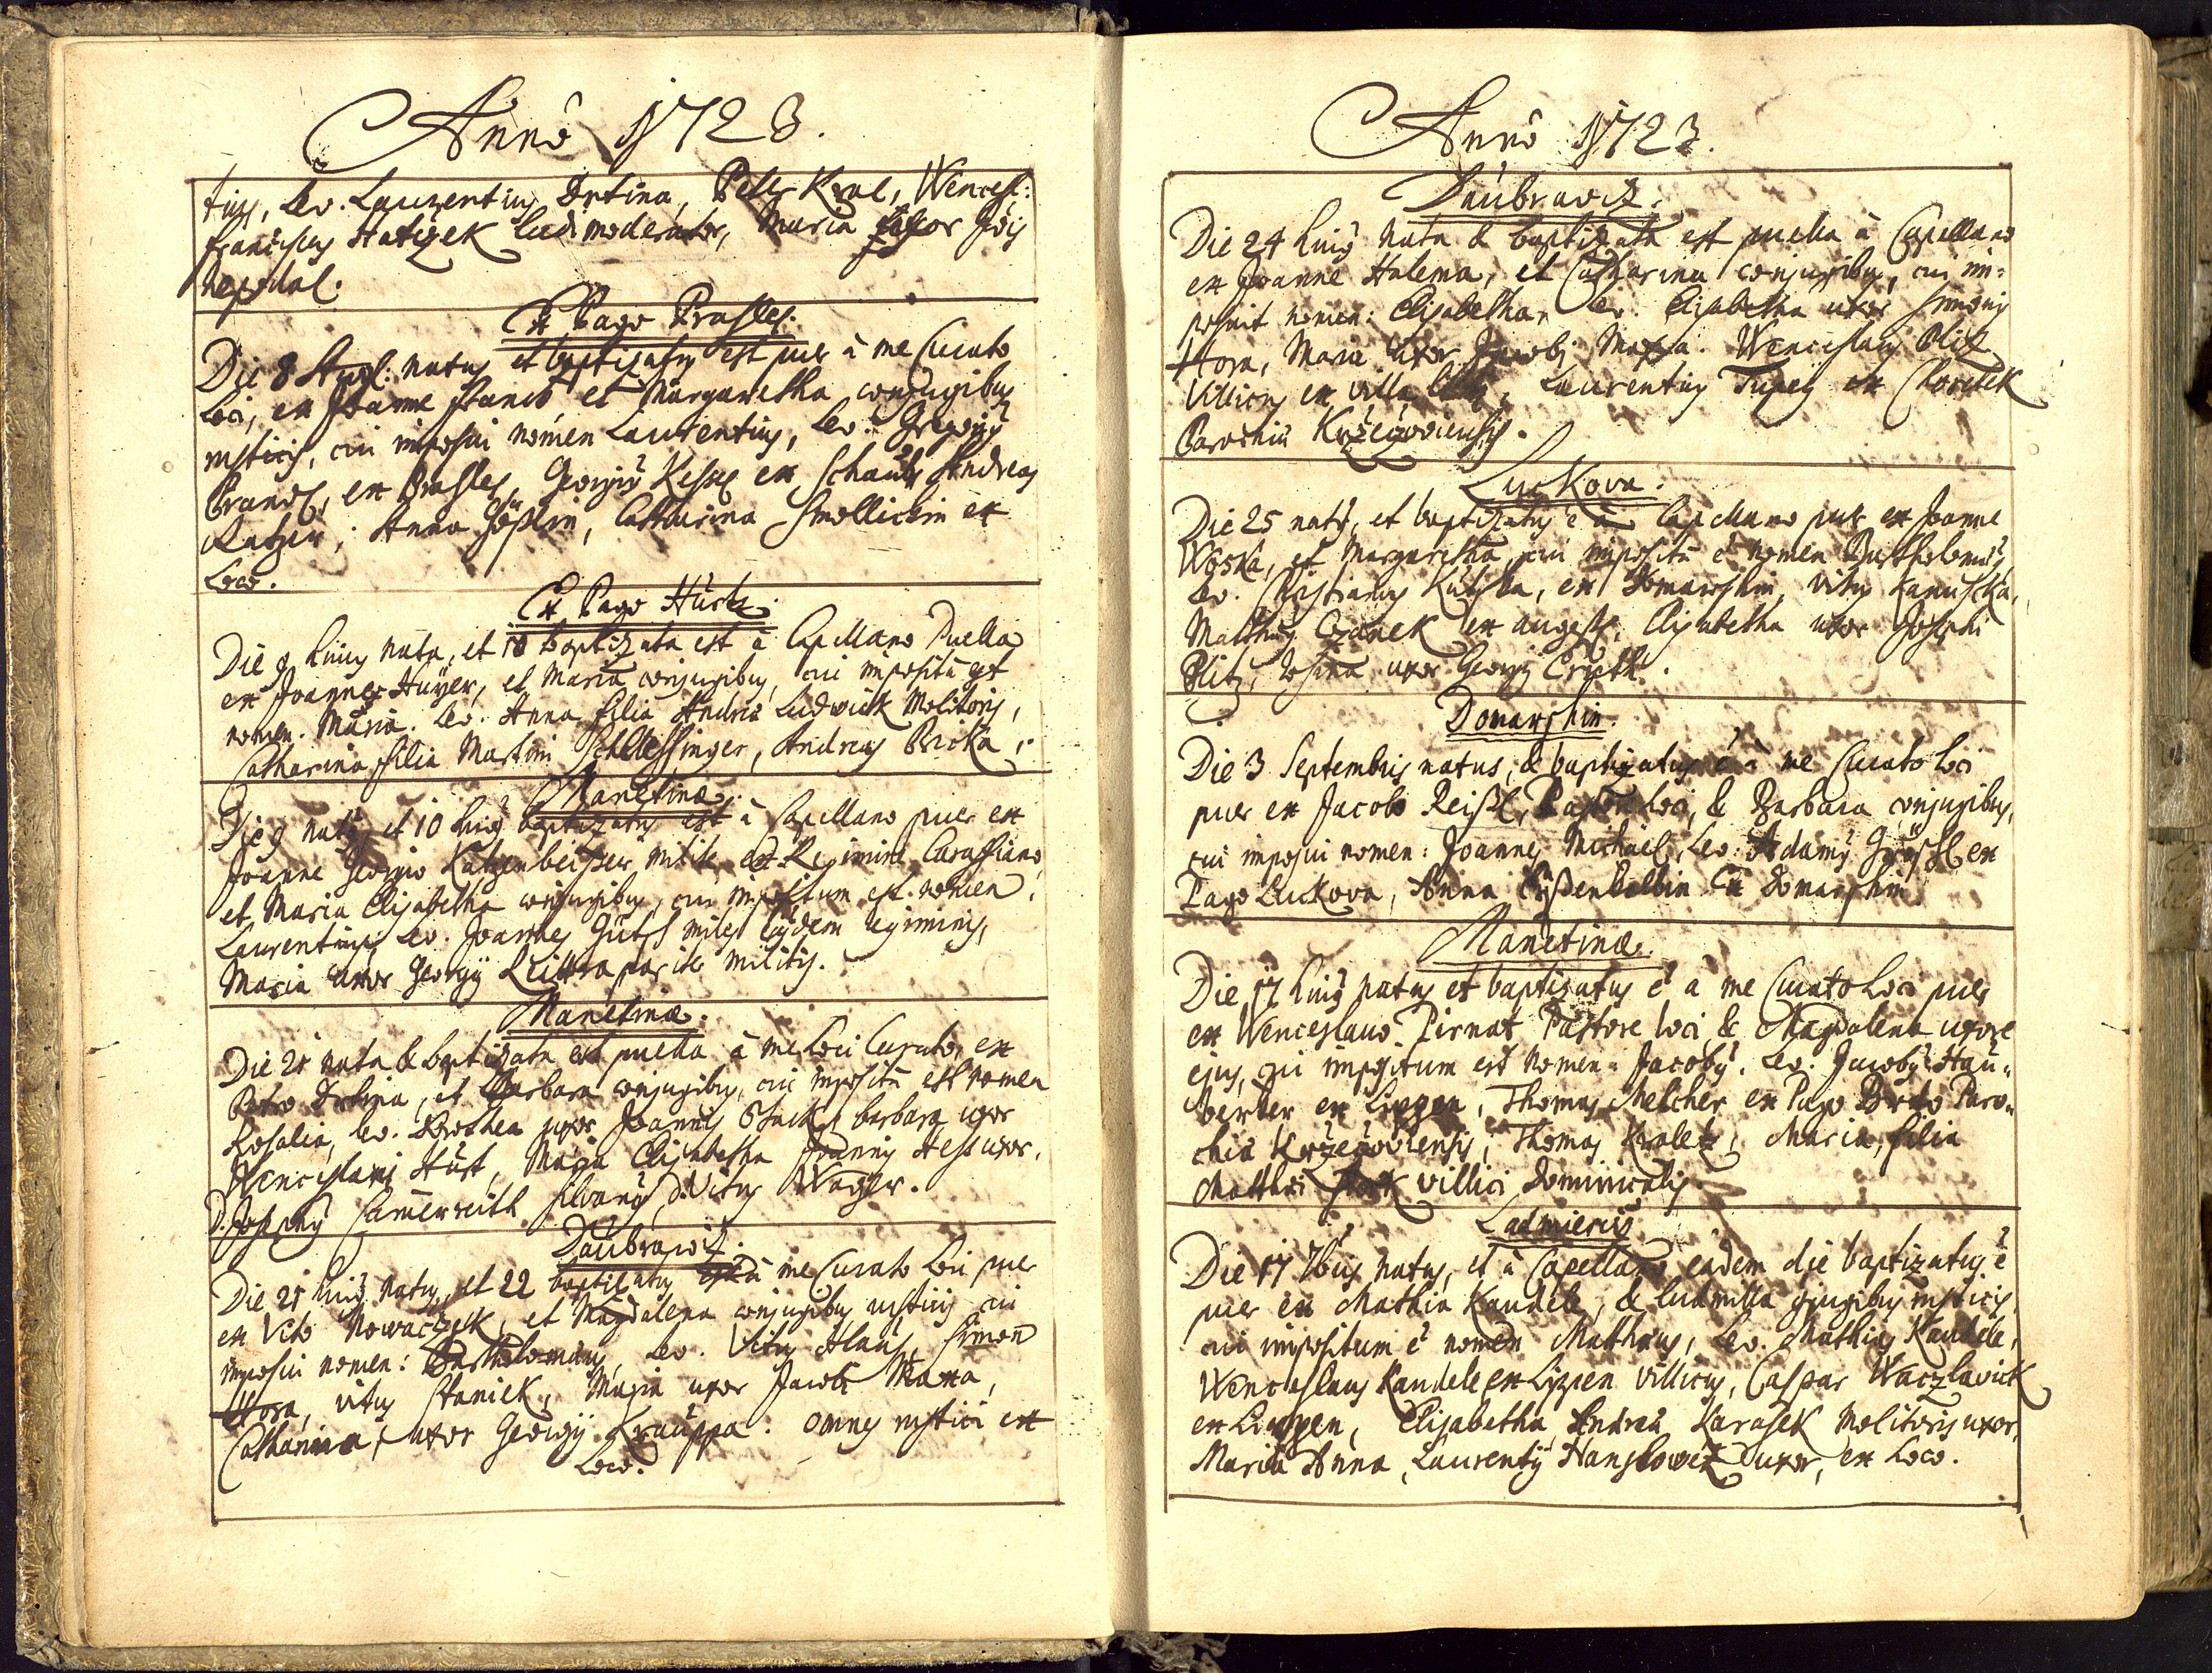 Anno 1723.
tius, lev. Laurentius Drtina, Petrus Kral, Wencesl:
Franciscus Hatizek ludimoderator, Maria uxor Jois
Nepodal.
Ex Pago Prasles.
Die 8 Aug: natus et baptizatus est puer à me Curato
Loci, ex Joanne et Margaretha conjugibus
rusticis, cui imposui nomen Laurentius, Lev. Gregorius
Brandl, ex Prasles, Georgius ex Andreas
Anna Catharina ex
Loco.
Ex Pago Hurtz.
Die 9 hujus nata, et 10 baptizata est à Capellano Puella
ex Joanne Huÿer, et Maria conjugibus, cui impositū est
nomen. Maria. Lev. Anna filia Andreæ Ludwick Molitoris,
Catharina filia Martini Schlessinger, Andreas Pricka.
Manetinæ.
Die 9 natus, et 10 hujus baptizatus est à Capellano puer ex
Joanne Georgio Katzenbeisser milite ex Regimine Carassiano
et Maria Elisabetha conjugibus, cui impositum est nomen
Laurentius, Lev. Joannes miles ejusdem regiminis,
Maria uxor Georgÿ pariter militis.
Manetinæ.
Die 21 nata & baptizata est puella à me Loci Curato, ex
Petro Drtina, et Barbara conjugibus, cui impositū est nomen
Rosalia, lev. Dorothea uxor Joannis barbara uxor
Wenceslai Hüst, Maria Elisabetha Joannis Hess uxor.
D. Josephus Camerreith silvanus, D. Vitus Wagner.
Daubrawitz.
Die 21 hujus natus, et 22 baptizatus est à me Curato Loci puer
ex Vito Nowaczek, et Magdalena conjugibus rusticis cui
imposui nomen: Bartholomæus, Lev. Vitus Hlaus, Simon
Hora, Vitus Staniek, Maria uxor Jacobi Maxa,
Catharina, uxor Georgÿ Krauppa. omnes rustici ex
Loco.
Anno 1723.
Daubrawitz.
Die 24 hujus Nata & baptizata est puella à Capellano
ex Joanne Halema, et Catharina conjugibus, cui im-
posuit nomen: Elisabetha, lev. Elisabetha uxor Simonis
Hora, Maria uxor Jacobi Maxa. Wenceslaus Plitz
Villicus ex villa Laurentius Tupeÿ ex
Parochia Krzeczoviensis.
Luckova.
Die 25 natus, et baptizatus ē à Capellano puer ex Joanne
Woska, et Margaretha, cui impositū ē nomen Bartholomæus,
Lev. Christianus ex Domarshin, Vitus Hanuschka,
Matthæus Czanek ex Elisabetha uxor Josephi
Plitz, Rosina uxor Georgÿ
Domarshin.
Die 3 Septembris natus, & baptizatus ē à me Curato Loci
puer ex Jacobo Reißl, Pastore Loci, & Barbara conjugibus,
cui imposui nomen: Joannes Michael, Lev. Adamus ex
Pago Luckova, Anna ex Domarshin
Manetinæ.
Die 17 hujus natus et baptizatus ē à me Curato Loci puer
ex Wenceslauo Pirnat Pastore loci, & Magdalena uxore
ejus, cui impositum est nomen: Jacobus. Lev. Jacobus Hau-
berber ex Lippen, Thomas Melcher ex Pago Brdo Paro-
chiæ Krzeczoviensis, Thomas Kraletz, Maria, filia
Matthæi villici Dominicalis.
Ladmieritz
Die 17 7bris natus, et à Capellano eadem die baptizatus ē
puer ex Mathia Kandele, & Ludmilla conjugibus rusticis
cui impositum ē nomen Matthæus, Lev. Mathias Kandele,
Wenceslaus Kandele ex Lippen villicus, Caspar Waczlavick
ex Lippen, Elisabetha, Andreæ Karasek Molitoris uxor,
Maria Anna, Laurentÿ Hanslowetz uxor, ex Loco.